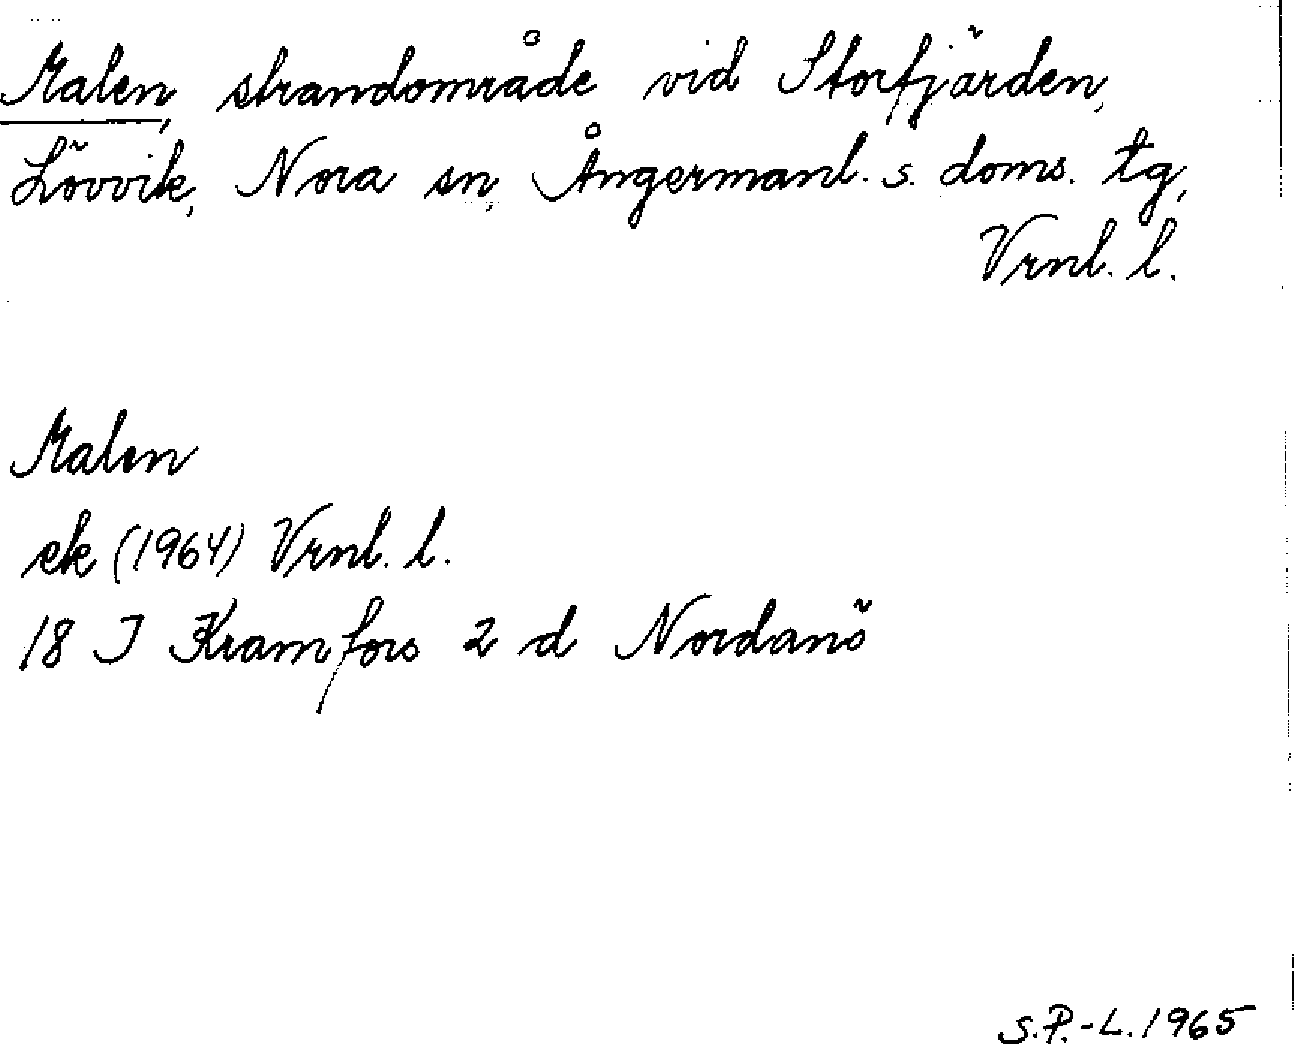 Malen, strandområde vid Storfjärden,
Lövvik, Nora sn, Ångermanl. s. doms. tg,
Vrnl. l.
Malen
ek (1964) Vrnl. l.
18 I Kramfors 2 d Nordanö
S.P.-L. 1965